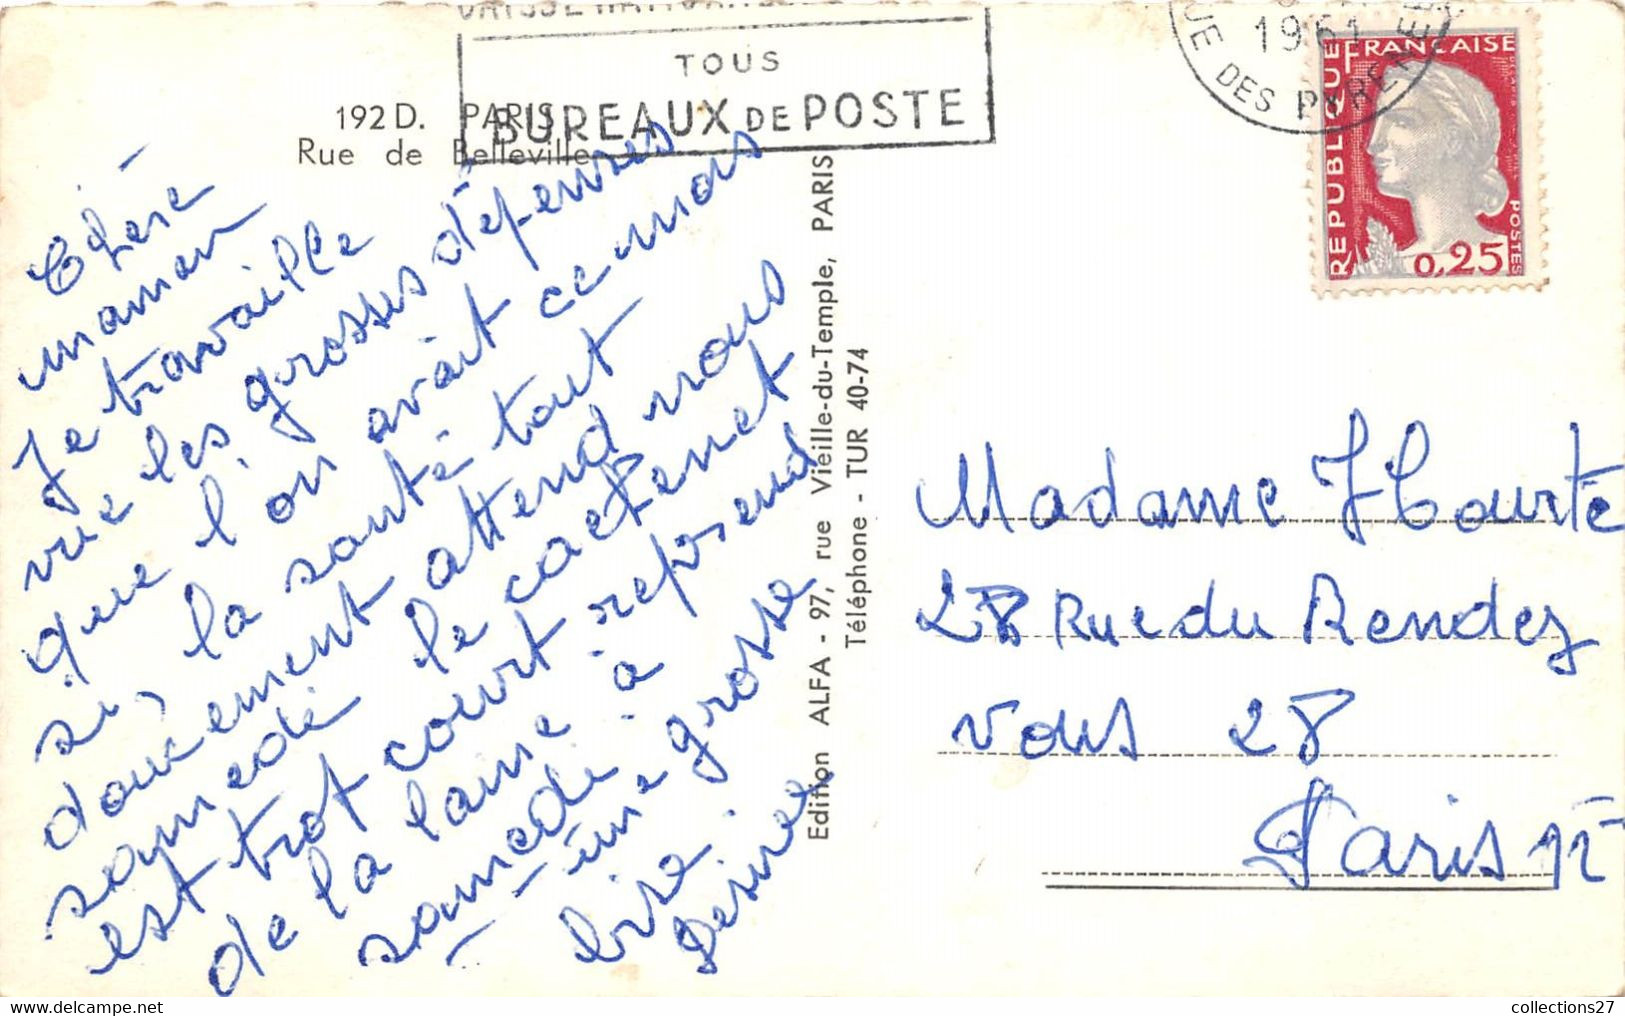 CAISSE NATIONALE
TOUS
BUREAUX DE POSTE
1961
RUE DES PYRENEES
REPUBLIQUE FRANÇAISE
POSTES
0,25
192 D. PARIS
Rue de Belleville
Chère
maman
Je travaille
vue les grosses dépenses
que l'on avait ce mois
si, la santé tout
doucement attend nous
samedi le cachenet
est trot court reprend
de la laine à
samedi
- une grosse
bise.
Desirée
Edition ALFA - 97, rue Vieille-du-Temple, PARIS
Téléphone - TUR 40-74
Madame Hourte
28 Rue du Rendez
vous 28
Paris 12
collections27